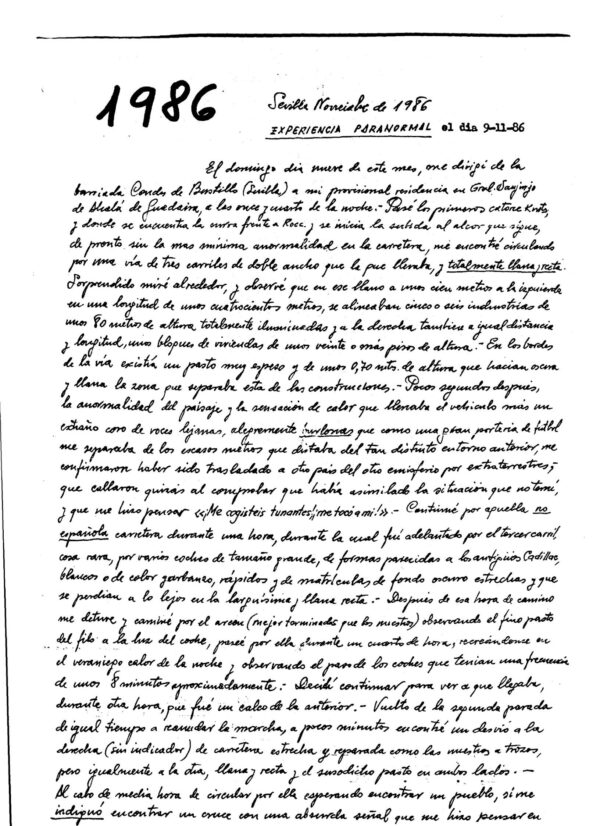 1986
Sevilla Noviembre de 1986
EXPERIENCIA PARANORMAL el dia 9-11-86
El domingo dia nueve de este mes, me dirigí de la
barriada Condes de Bustillo (Sevilla) a mi provisional residencia en Gral. Sanjurjo
de Alcalá de Guadaira, a las once y cuarto de la noche.- Pasé los primeros catorce Kmts,
y donde se encuentra la curva frente a Roca, y se inicia la subida al alcor que sigue,
de pronto, sin la mas mínima anormalidad en la carretera, me encontré circulando
por una vía de tres carriles de doble ancho que la que llevaba, y totalmente llana y recta.
Sorprendido miré alrededor, y observé que en ese llano a unos cien metros a la izquierda
en una longitud de unos cuatrocientos metros, se alineaban cinco o seis industrias de
unos 80 metros de altura totalmente iluminadas y a la derecha tambien a igual distancia
y longitud, unos bloques de viviendas de unos veinte o más pisos de altura.- En los bordes
de la vía existía un pasto muy espeso y de unos 0,70 mts. de altura que hacían oscura
y llana la zona que separaba esta de las construcciones.- Pocos segundos después,
la anormalidad del paisaje y la sensación de calor que llenaba el vehículo más un
extraño coro de voces lejanas, alegremente burlonas que como una gran portería de fútbol
me separaba de los escasos metros que distaba del tan distinto entorno anterior, me
confirmaron haber sido trasladado a otro país del otro emisferio por extraterrestres;
que callaron quizás al comprobar que había asimilado la situación que no temí,
y que me hizo pensar «¡Me cogisteis tunantes, me tocó a mi!».- Continué por aquella no
española carretera durante una hora, durante la cual fuí adelantado por el tercer carril,
cosa rara, por varios coches de tamaño grande, de formas parecidas a los antiguos Cadillac,
blancos o de color garbanzo, rápidos y de matrículas de fondo oscuro estrechas y que
se perdían a lo lejos en la larguísima y llana recta.- Después de esa hora de camino
me detuve y caminé por el arcen (mejor terminados que los nuestros) observando el fino pasto
del filo a la luz del coche, paseé por ella durante un cuarto de hora, recreándome en
el veraniego calor de la noche y observando el paso de los coches que tenían una frecuencia
de unos 8 minutos aproximadamente.- Decidí continuar para ver a que llegaba,
durante otra hora, que fué un calco de la anterior.- Vuelto de la segunda parada
de igual tiempo a reanudar la marcha, a pocos minutos encontré un desvío a la
derecha (sin indicador) de carretera estrecha y reparada como las nuestras a trozos,
pero igualmente a la otra, llana y recta y el susodicho pasto en ambos lados.-
Al cabo de media hora de circular por ella esperando encontrar un pueblo, sí me
indignó encontrar un cruce con una absurda señal que me hizo pensar en